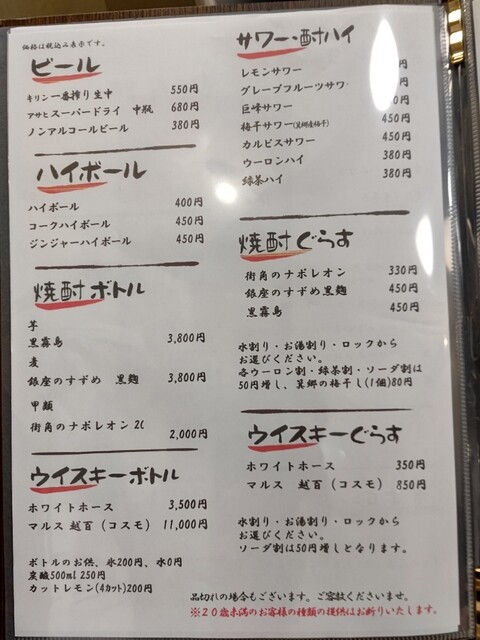 価格は税込み表示です。
ビール
キリン一番搾り生中 550円
アサヒスーパードライ 中瓶 680円
ノンアルコールビール 380円
ハイボール
ハイボール 400円
コークハイボール 450円
ジンジャーハイボール 450円
焼酎ボトル
芋
黒霧島 3,800円
麦
銀座のすずめ 黒麹 3,800円
甲類
街角のナポレオン 2ℓ
2,000円
ウイスキーボトル
ホワイトホース 3,500円
マルス 越百(コスモ) 11,000円
ボトルのお供、氷200円、水0円
炭酸500ml 250円
カットレモン(4カット)200円
サワー・酎ハイ
レモンサワー 円
グレープフルーツサワ 円
巨峰サワー 450円
梅干サワー(箕郷産梅干) 450円
カルピスサワー 450円
ウーロンハイ 380円
緑茶ハイ 380円
焼酎ぐらす
街角のナポレオン 330円
銀座のすずめ黒麹 450円
黒霧島 450円
水割り・お湯割り・ロックから
お選びください。
各ウーロン割・緑茶割・ソーダ割は
50円増し、箕郷の梅干し(1個)80円
ウイスキーぐらす
ホワイトホース 350円
マルス 越百(コスモ) 850円
水割り・お湯割り・ロックから
お選びください。
ソーダ割は50円増しとなります。
品切れの場合もございます。ご容赦くださいませ。
※20歳未満のお客様の種類の提供はお断りいたします。